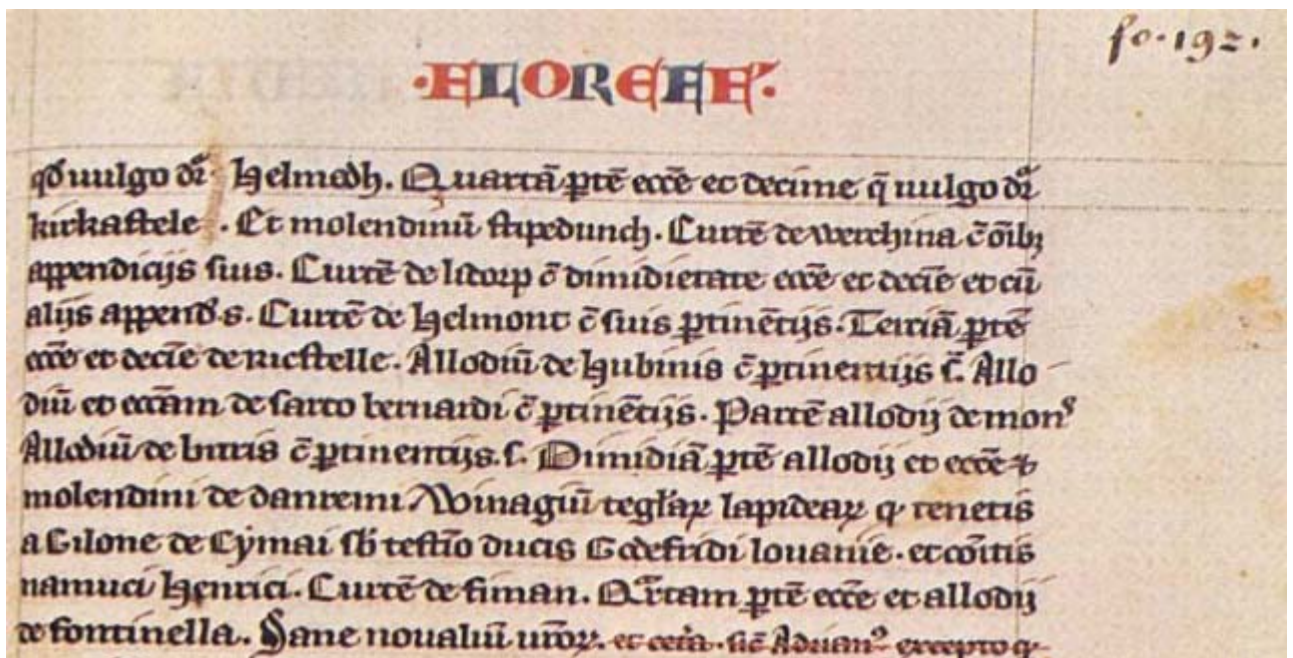 fo. 192.
·FLOREFF̃·
qđ uulgo dr̃ Helmedh. Quartã ꝑtẽ ecc̃e et decime q̃ uulgo dr̃
kirkastele. Et molendinũ stipedunch. Curtẽ de werchina c̃ õibꝫ
appendicijs suis. Curtẽ de litorp c̃ dimidietate ecc̃e et decĩe et cũ
alijs append̃.s. Curtẽ de Helmont c̃ suis ꝑtinẽtijs. Terciã ꝑtẽ
ecc̃e et decĩe de ricstelle. Allodiũ de Hubinis c̃ ꝑtinentijs s̃. Allo-
diũ et ecc̃am de sarto bernardi c̃ ꝑtinẽtijs. Partẽ allodij de monꝰ
Allodiũ de buris c̃ ꝑtinentijs.s. Dimidiã ꝑtẽ allodij et ecc̃e ⁊
molendini de danremi. Winagiũ tegl̃aꝝ lapideaꝝ q̃ tenetis
a Gilone de Cymai sb̃ testĩo ducis Godefridi louanie. et cõitis
namuci Henrici. Curtẽ de fiman. Qͣrtam ꝑtẽ ecc̃e et allodij
de fontinella. Sane noualiũ ur̃oꝝ. et cet̃a. sic̃ Adrianꝰ excepto q̃